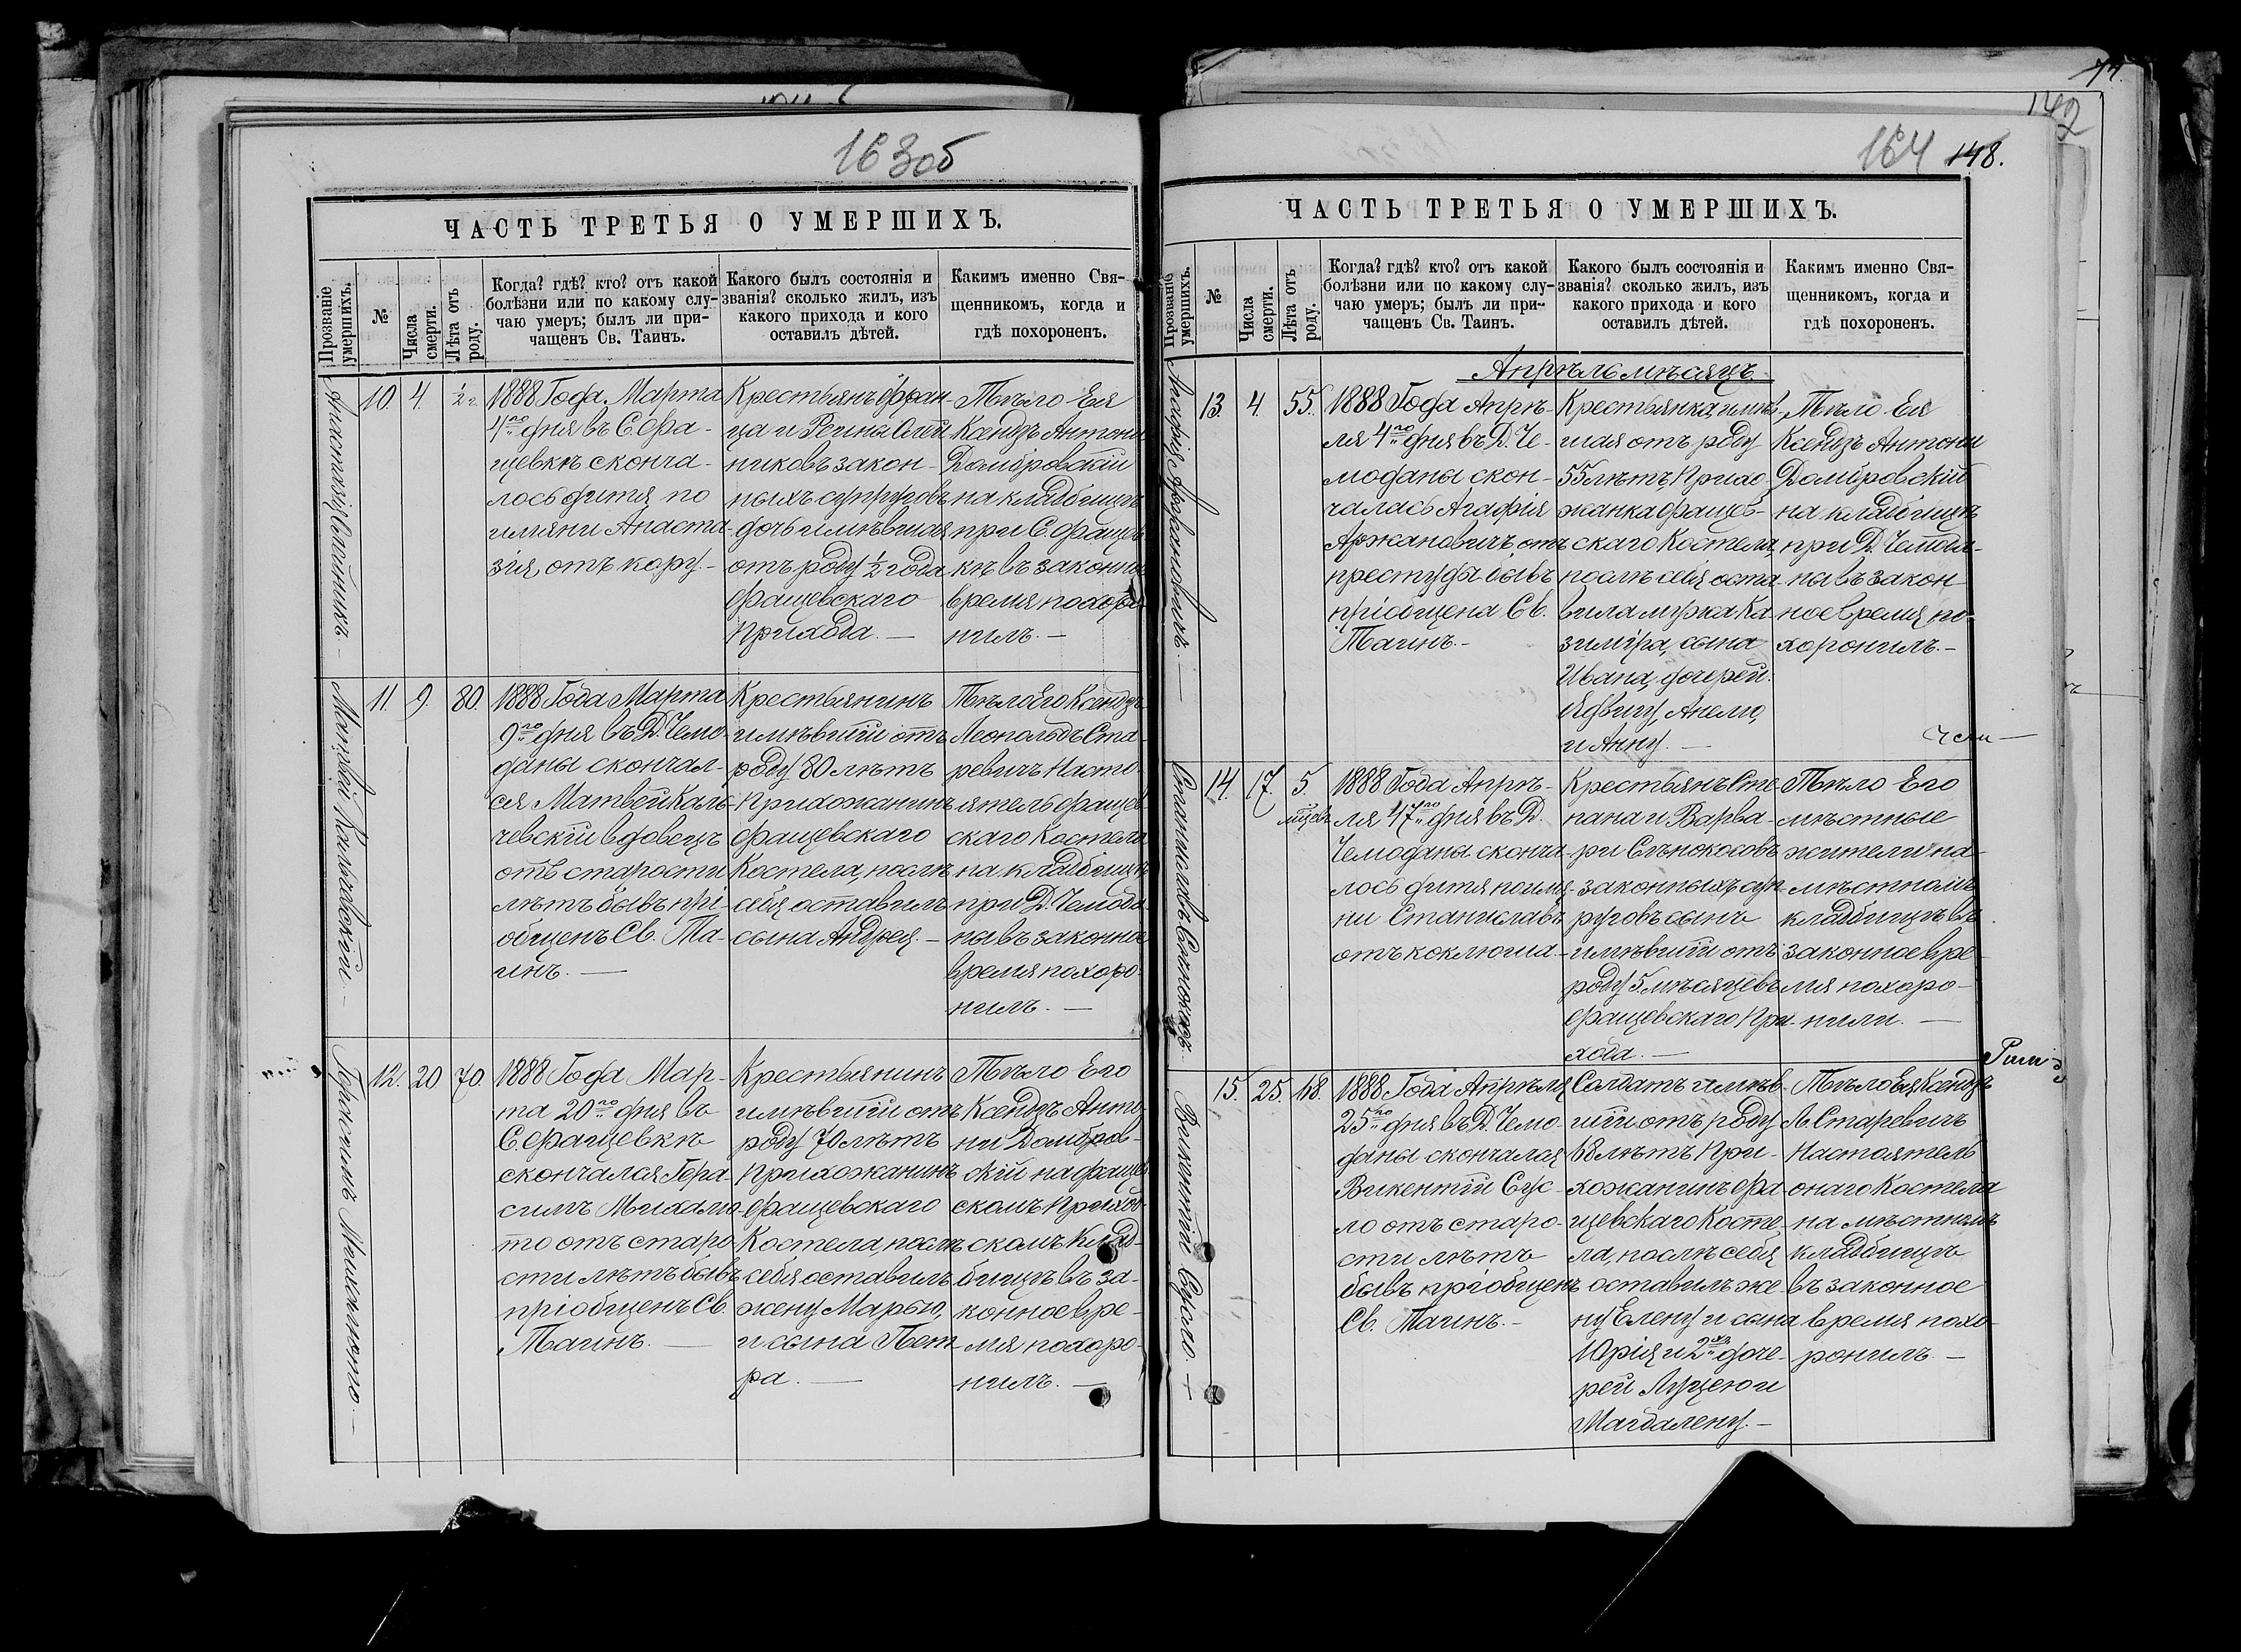 163об
ЧАСТЬ ТРЕТЬЯ О УМЕРШИХЪ.
Прозваніе умершихъ.
№
Числа смерти.
Лѣта отъ роду.
Когда? гдѣ? кто? отъ какой
болѣзни или по какому слу-
чаю умеръ; былъ ли при-
чащенъ Св. Таинъ.
Какого былъ состоянія и
званія? сколько жилъ, изъ
какого прихода и кого
оставилъ дѣтей.
Какимъ именно Свя-
щенникомъ, когда и
гдѣ похороненъ.
10. 4. ½ г.
1888 Года Марта
4го дня въ С. Фра-
щевкѣ сконча-
лось дитя по
имяни Анаста-
зія, отъ кору.-
Крестьянъ Фран
ца и Регины
никовъ закон-
ныхъ супруговъ
дочь имѣвшая
отъ роду ½ года
Фращевскаго
Прихода.-
Тѣло Ея
Ксендзъ Антони
Домбровскій
на кладбищѣ
при С. Фращев
кѣ въ законное
время похоро
нилъ.-
Кальчевскій-
11. 9. 80.
1888 Года Марта
9го дня въ Д. Чемо-
даны скончал-
ся Матвей Каль-
чевскій вдовецъ
отъ старости
лѣтъ бывъ прі-
общенъ Св. Та-
инъ.-
Крестьянинъ
имѣвшій отъ
роду 80 лѣтъ
Прихожанинъ
Фращевскаго
Костела, послѣ
себя оставилъ
сына Андрея.-
Тѣло Его Ксендзъ
Леопольдъ Ста-
ревичъ Насто-
ятель Фращев
скаго Костела
на кладбищѣ
при Д. Чемода-
ны въ законное
время похоро-
нилъ.-
Герасимъ Михалюто.-
12. 20 70.
1888 Года Мар-
та 20го дня въ
С. Фращевкѣ
скончался Гера-
симъ Михалю-
то отъ старо-
сти лѣтъ бывъ
пріобщенъ Св.
Таинъ.-
Крестьянинъ
имѣвшій отъ
роду 70 лѣтъ
Прихожанинъ
Фращевскаго
Костела, послѣ
себя оставилъ
жену Марью,
и сына Пет-
ра.-
Тѣло Его
Ксендзъ Анто
ни Домбров-
скій на Фращев
скомъ Приход-
скомъ Клад-
бищѣ въ за-
конное вре-
мя похоро-
нилъ.-
74.
142
164 148.
ЧАСТЬ ТРЕТЬЯ О УМЕРШИХЪ.
Прозваніе умершихъ.
№
Числа смерти.
Лѣта отъ роду.
Когда? гдѣ? кто? отъ какой
болѣзни или по какому слу-
чаю умеръ; былъ ли при-
чащенъ Св. Таинъ.
Какого былъ состоянія и
званія? сколько жилъ, изъ
какого прихода и кого
оставилъ дѣтей.
Какимъ именно Свя-
щенникомъ, когда и
гдѣ похороненъ.
Апрѣль мѣсяцъ
Агафія Аржановичъ.-
13. 4. 55.
1888 Года Апрѣ-
ля 4го дня въ Д. Че-
моданы скон-
чалась Агафія
Аржановичъ, отъ
престуды бывъ
пріобщена Св.
Таинъ.-
Крестьянка, имѣв
шая отъ роду
55 лѣтъ, Прихо-
жанка Фращев-
скаго Костела,
послѣ себя оста-
вила мужа Ка-
зиміра, сына
Ивана, дочерей:
Ядвигу, Анелю,
и Анну.-
Тѣло Ея
Ксендзъ Антони
Домбровскій
на кладбищѣ
при Д. Чемода-
ны въ закон
ное время по-
хоронилъ.-
Станиславъ Сѣнокосъ
14. 17. 5. мѣсяц.
1888 Года Апрѣ-
ля 17го дня въ Д.
Чемоданы сконча-
лось дитя по имя-
ни Станиславъ
отъ коклюша.-
Крестьянъ Сте-
пана и Варва-
ри Сѣнокосовъ
законныхъ суп-
руговъ сынъ
имѣвшій отъ
роду 5. мѣсяцевъ
Фращевскаго При-
хода.-
Тѣло Его
мѣстные
жители на
мѣстномъ
кладбищѣ въ
законное вре-
мя похоро-
нили.-
Викентій Сусло.-
15. 25. 68.
1888 Года Апрѣля
25го дня въ Д. Чемо-
даны скончался
Викентій Сус-
ло отъ старо-
сти лѣтъ
бывъ пріобщенъ
Св. Таинъ.-
Солдатъ имѣв-
шій отъ роду
68 лѣтъ При-
хожанинъ Фра-
щевскаго Косте-
ла, послѣ себя
оставилъ же-
ну Елену и сына
Юрія и 2хъ доче-
рей Луцею и
Магдалену.-
Тѣло Ея Ксендзъ
Л. Старевичъ
Настоятель
онаго Костела
на мѣстномъ
кладбищѣ
въ законное
время похо-
ронилъ.-